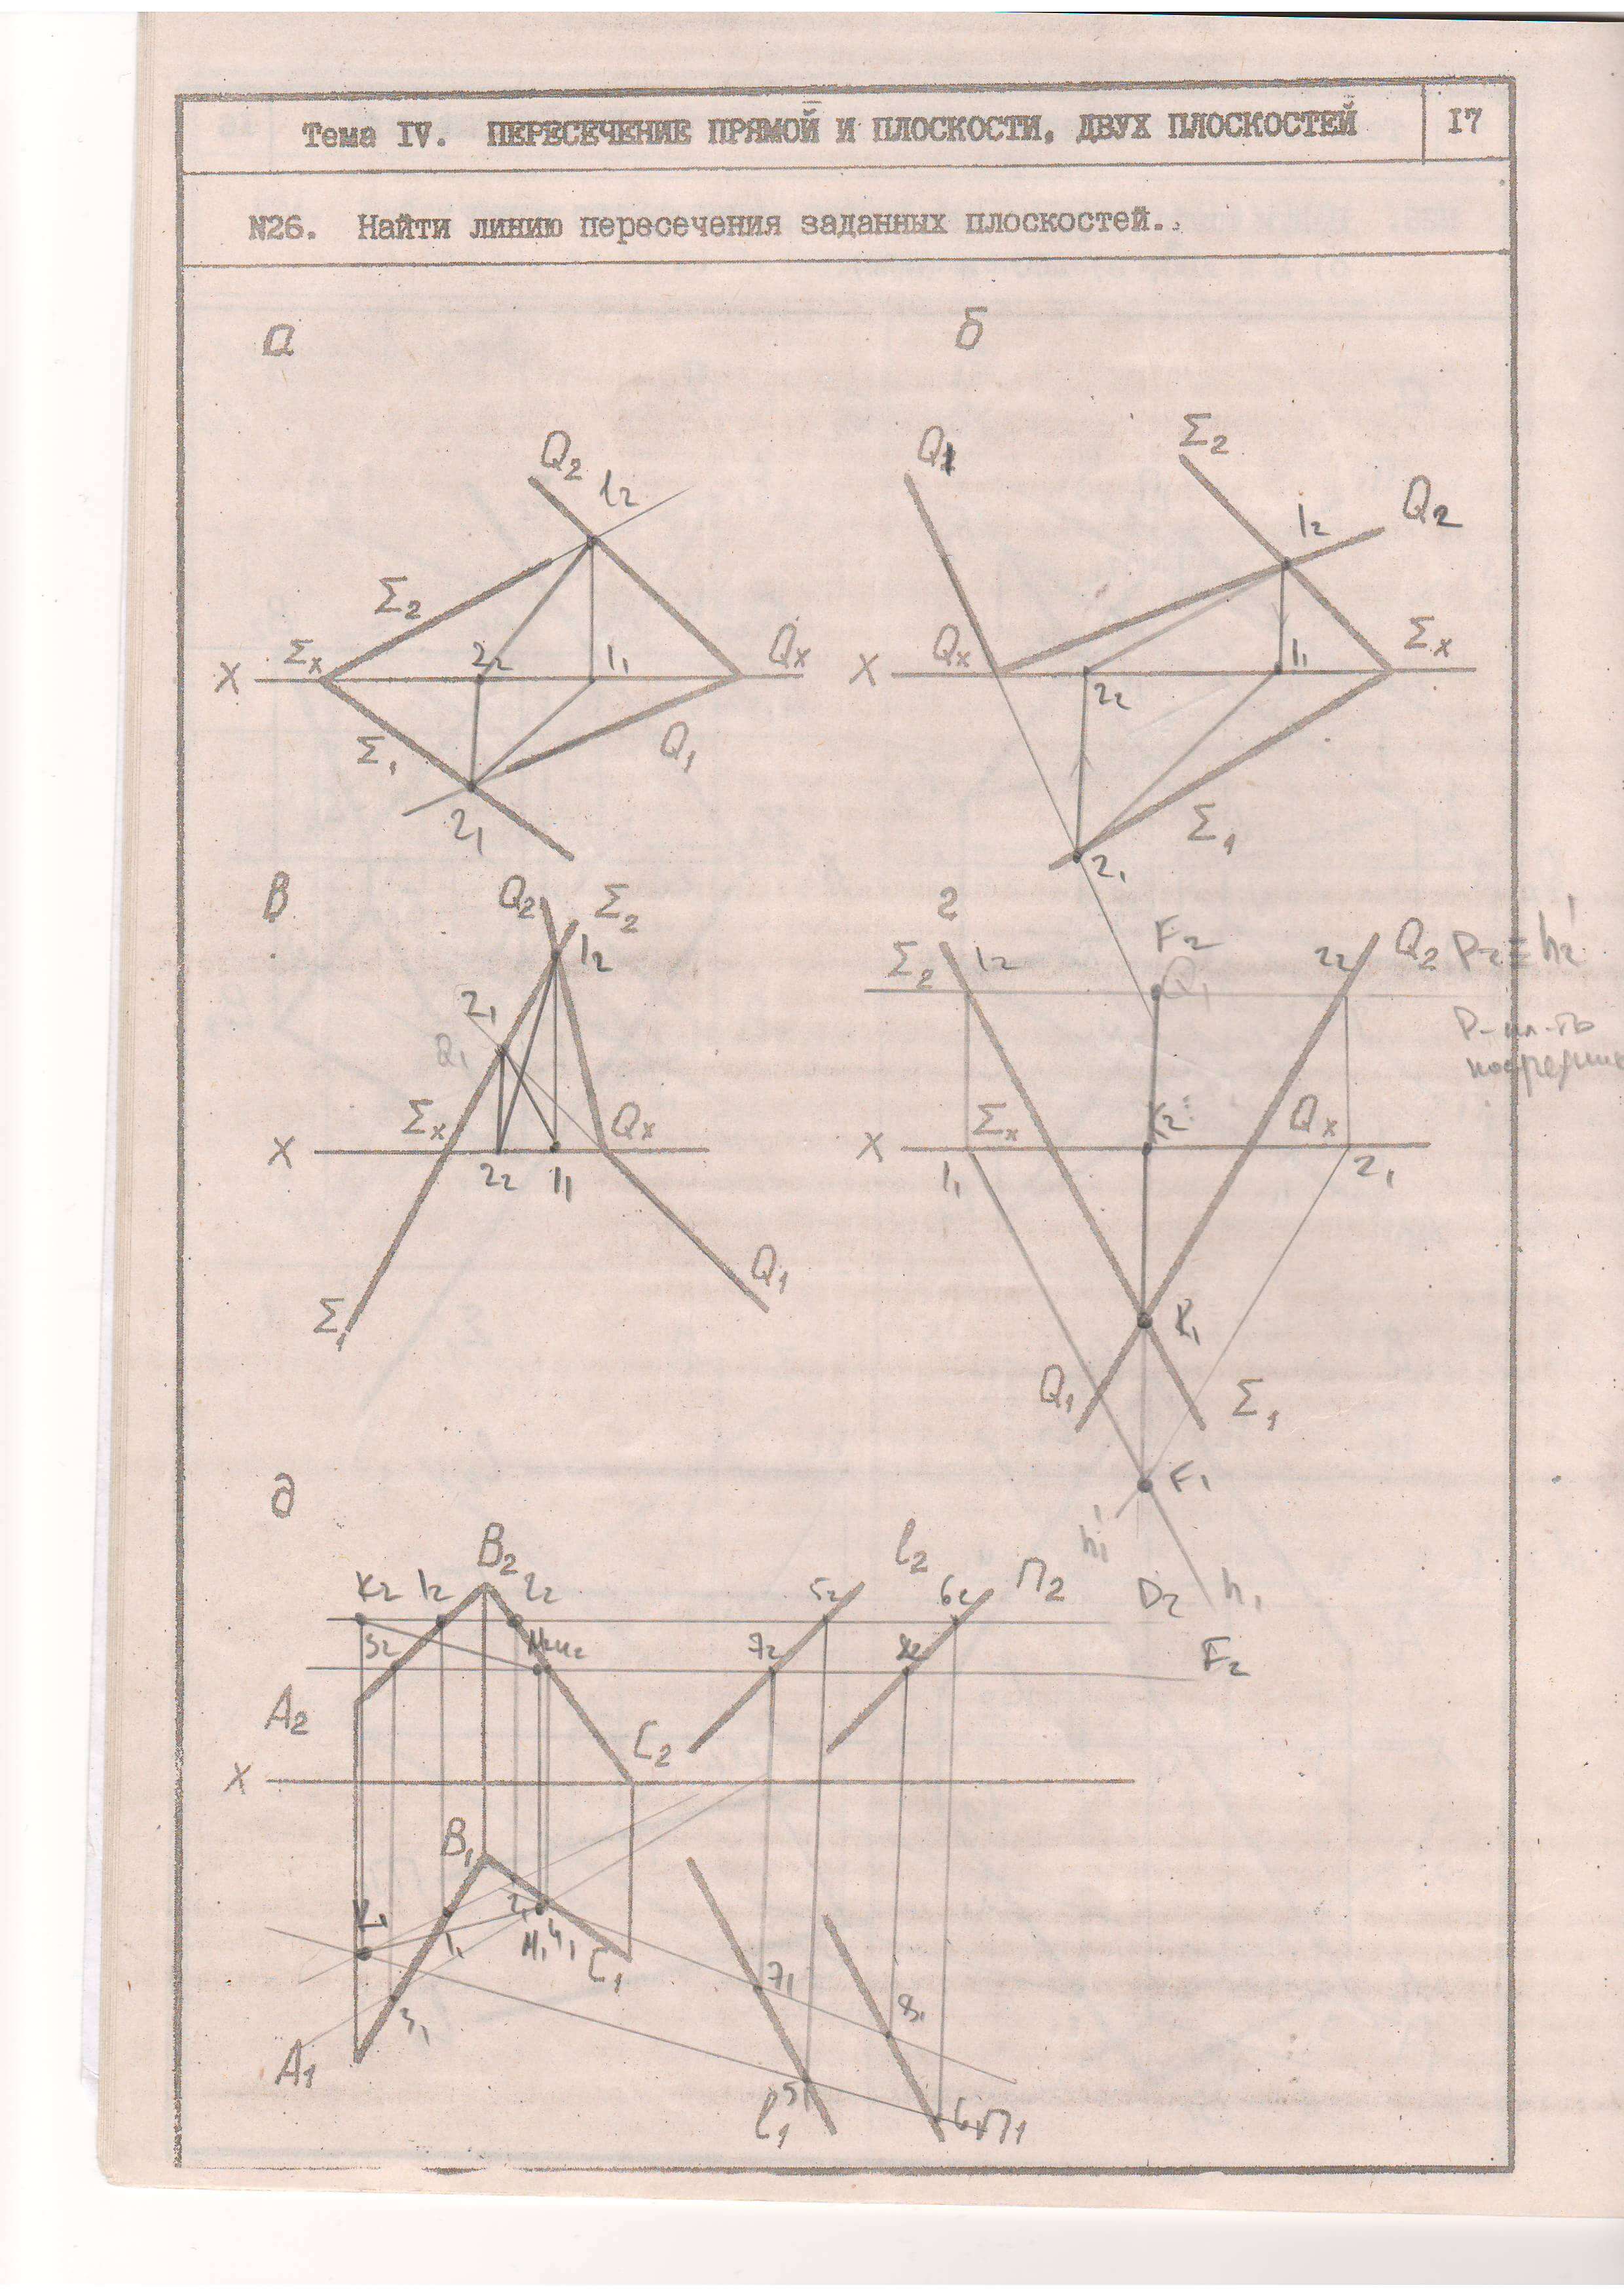 Тема IV. ПЕРЕСЕЧЕНИЕ ПРЯМОЙ И ПЛОСКОСТИ, ДВУХ ПЛОСКОСТЕЙ
I7
N26. Найти линию пересечения заданных плоскостей.
а
б
Q₂ 1₂
Σ₂
Σx 2₂ 1₁ Qx
X
Σ₁ Q₁
2₁
Q₁ Σ₂
1₂ Q₂
X Qx 1₁ Σx
2₂
Σ₁
2₁
в
Q₂ Σ₂
1₂
2₁
Q₁
Σx Qx
X
2₂ 1₁
Q₁
Σ₁
г
F₂
Σ₂ 1₂ 2₂ Q₂ P₂≡h₂'
Q₁
P-пл-ть
Σx K₂ Qx
X
1₁ 2₁
K₁
Q₁ Σ₁
F₁
h₁'
h₁
д
B₂
K₂ 1₂ 2₂ 5₂ l₂ 6₂ П₂ D₂
3₂ M₂ 4₂ 7₂ 8₂ F₂
A₂
C₂
X
B₁
K₁ 1₁ 2₁ M₁ 4₁ C₁
3₁ 7₁ 8₁
A₁
l₁ 5 6₁ П₁